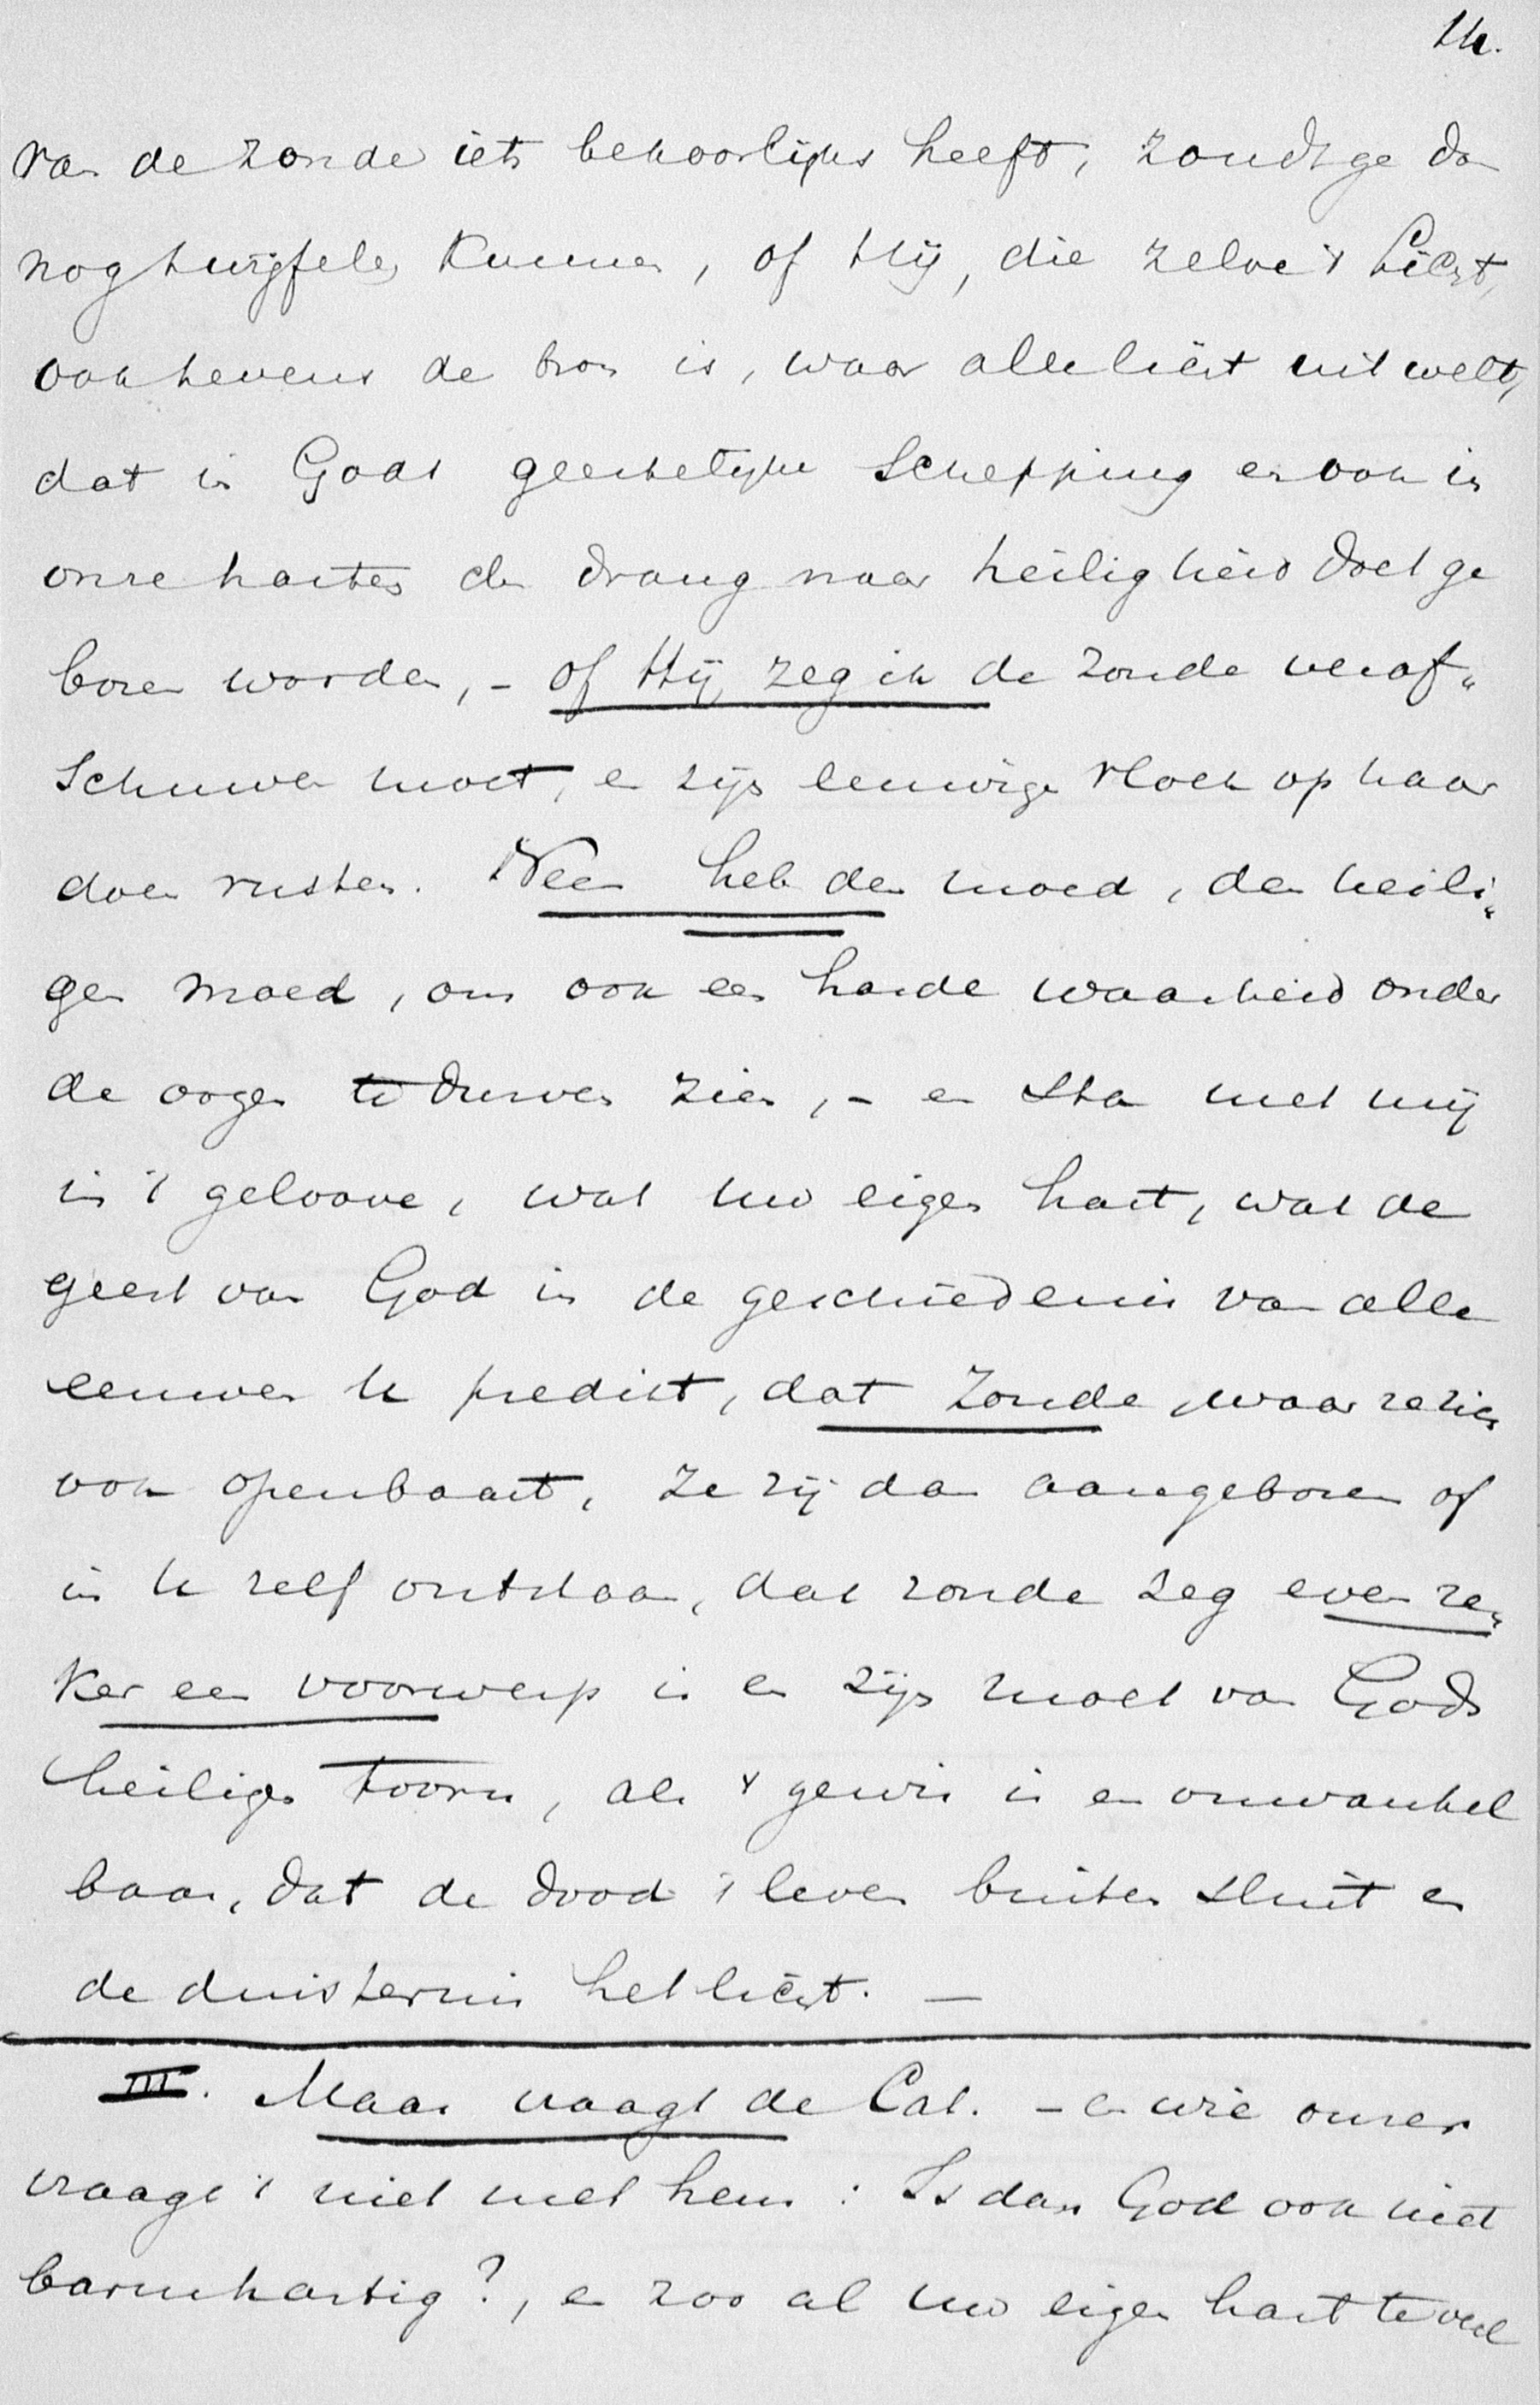 14.
van de zonde iets behoorlijks heeft, zoudt ge dan
nog twijfelen kunnen, of Hij, die zelve 't Licht,
ook tevens de bron is, waar alle licht uit welt,
dat in Gods geestelijke Schepping en ook in
onze harten den drang naar heiligheid doet ge
boren worden, - of Hij, zeg ik de zonde veraf„
schuwen moet, en zijn eeuwige vloek op haar
doen rusten. Neen heb den moed, den heili„
gen moed, om ook een harde waarheid onder
de oogen te durven zien, - en sta met mij
in 't geloove, wat uw eigen hart, wat de
geest van God in de geschiedenis van alle
eeuwen u predikt, dat zonde, waar ze zich
ook openbaart, ze zij dan aangeboren of
in u zelf ontstaan, dat zonde zeg even ze„
ker een voorwerp is en zijn moet van Gods
heiligen toorn, als 't gewis is en onwankel
baar, dat de dood 't leven buiten sluit en
de duisternis het licht. —
III. Maar vraagt de Cat. - en wie onzer
vraagt 't niet met hem : Is dan God ook niet
barmhartig?, en zoo al uw eigen hart te veel